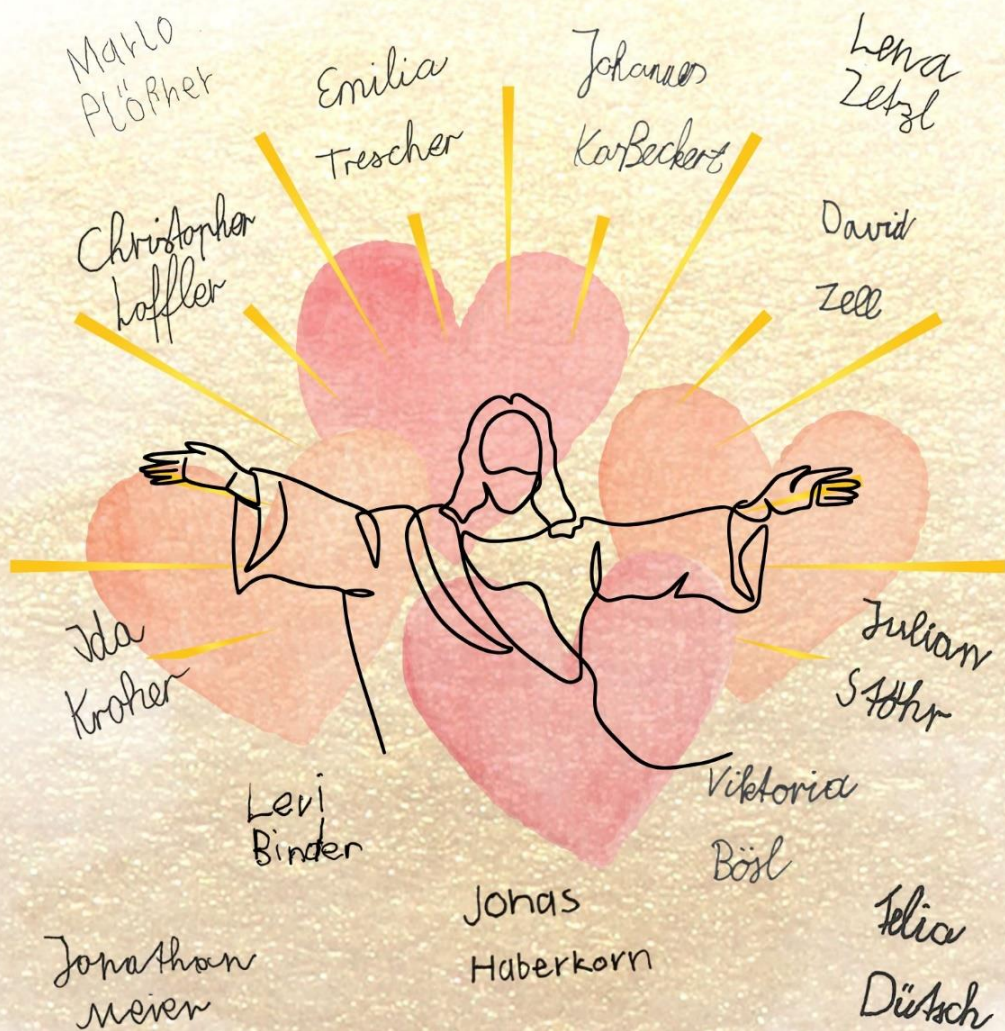 Marlo
Plößner
Emilia
Trescher
Johannes
Karßeckert
Lena
Zetzl
Christopher
Löffler
David
Zell
Ida
Kroher
Julian
Stöhr
Levi
Binder
Viktoria
Bösl
Jonas
Haberkorn
Jonathan
Meier
Felia
Dütsch